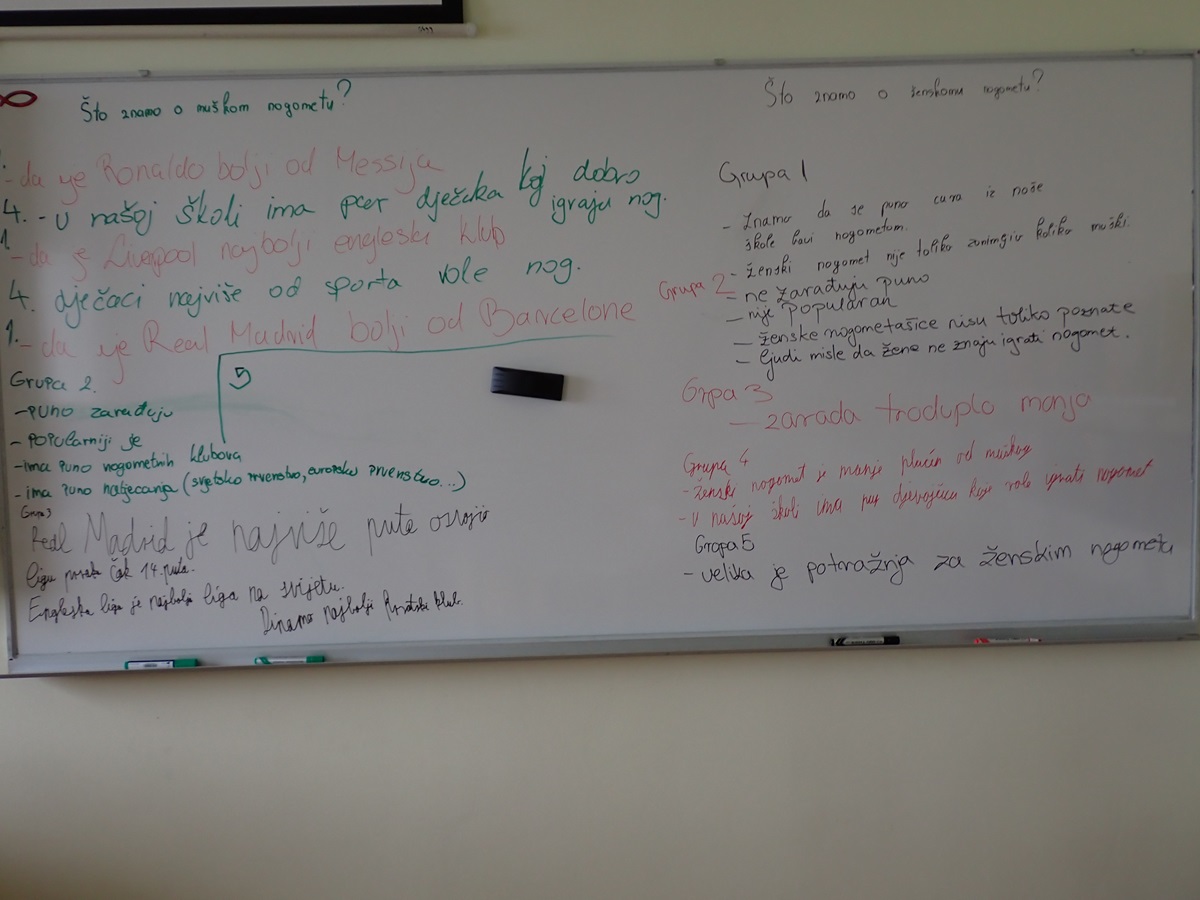 Što znamo o muškom nogometu?
1.
- da je Ronaldo bolji od Messija
4. - u našoj školi ima par dječaka koj dobro
igraju nog.
1.
- da je Liverpool najbolji engleski klub
4. dječaci najviše od sporta vole nog.
1. - da je Real Madrid bolji od Barcelone
5
Grupa 2.
- puno zarađuju
- popularniji je
- ima puno nogometnih klubova
- ima puno natjecanja (svjetsko prvenstvo, europsko prvenstvo...)
Grupa 3
Real Madrid je najviše puta osvojio
ligu prvaka čak 14. puta.
Engleska liga je najbolja liga na svijetu.
Dinamo najbolji Hrvatski klub.
Što znamo o ženskomu nogometu?
Grupa 1
- Znamo da se puno cura iz naše
škole bavi nogometom.
- ženski nogomet nije toliko zanimljiv koliko muški.
Grupa 2
- ne zarađuju puno
- nije popularan
- ženske nogometašice nisu toliko poznate
- ljudi misle da žene ne znaju igrati nogomet.
Grpa 3
- zarada troduplo manja
Grupa 4
- ženski nogomet je manje plaćen od muškog
- U našoj školi ima par djevojčica koje vole igrati nogomet
Gropa 5
- velika je potražnja za ženskim nogometu